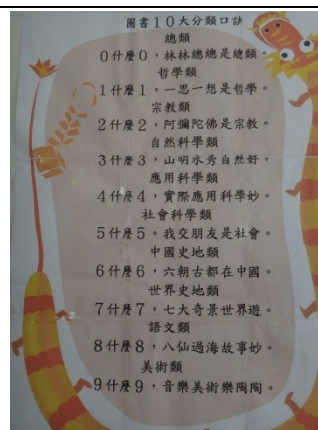 圖書10大分類口訣
總類
0什麼0，林林總總是總類。
哲學類
1什麼1，一思一想是哲學。
宗教類
2什麼2，阿彌陀佛是宗教。
自然科學類
3什麼3，山明水秀自然好。
應用科學類
4什麼4，實際應用科學妙。
社會科學類
5什麼5。我交朋友是社會。
中國史地類
6什麼6，六朝古都在中國。
世界史地類
7什麼7，七大奇景世界遊。
語文類
8什麼8，八仙過海故事妙。
美術類
9什麼9，音樂美術樂陶陶。